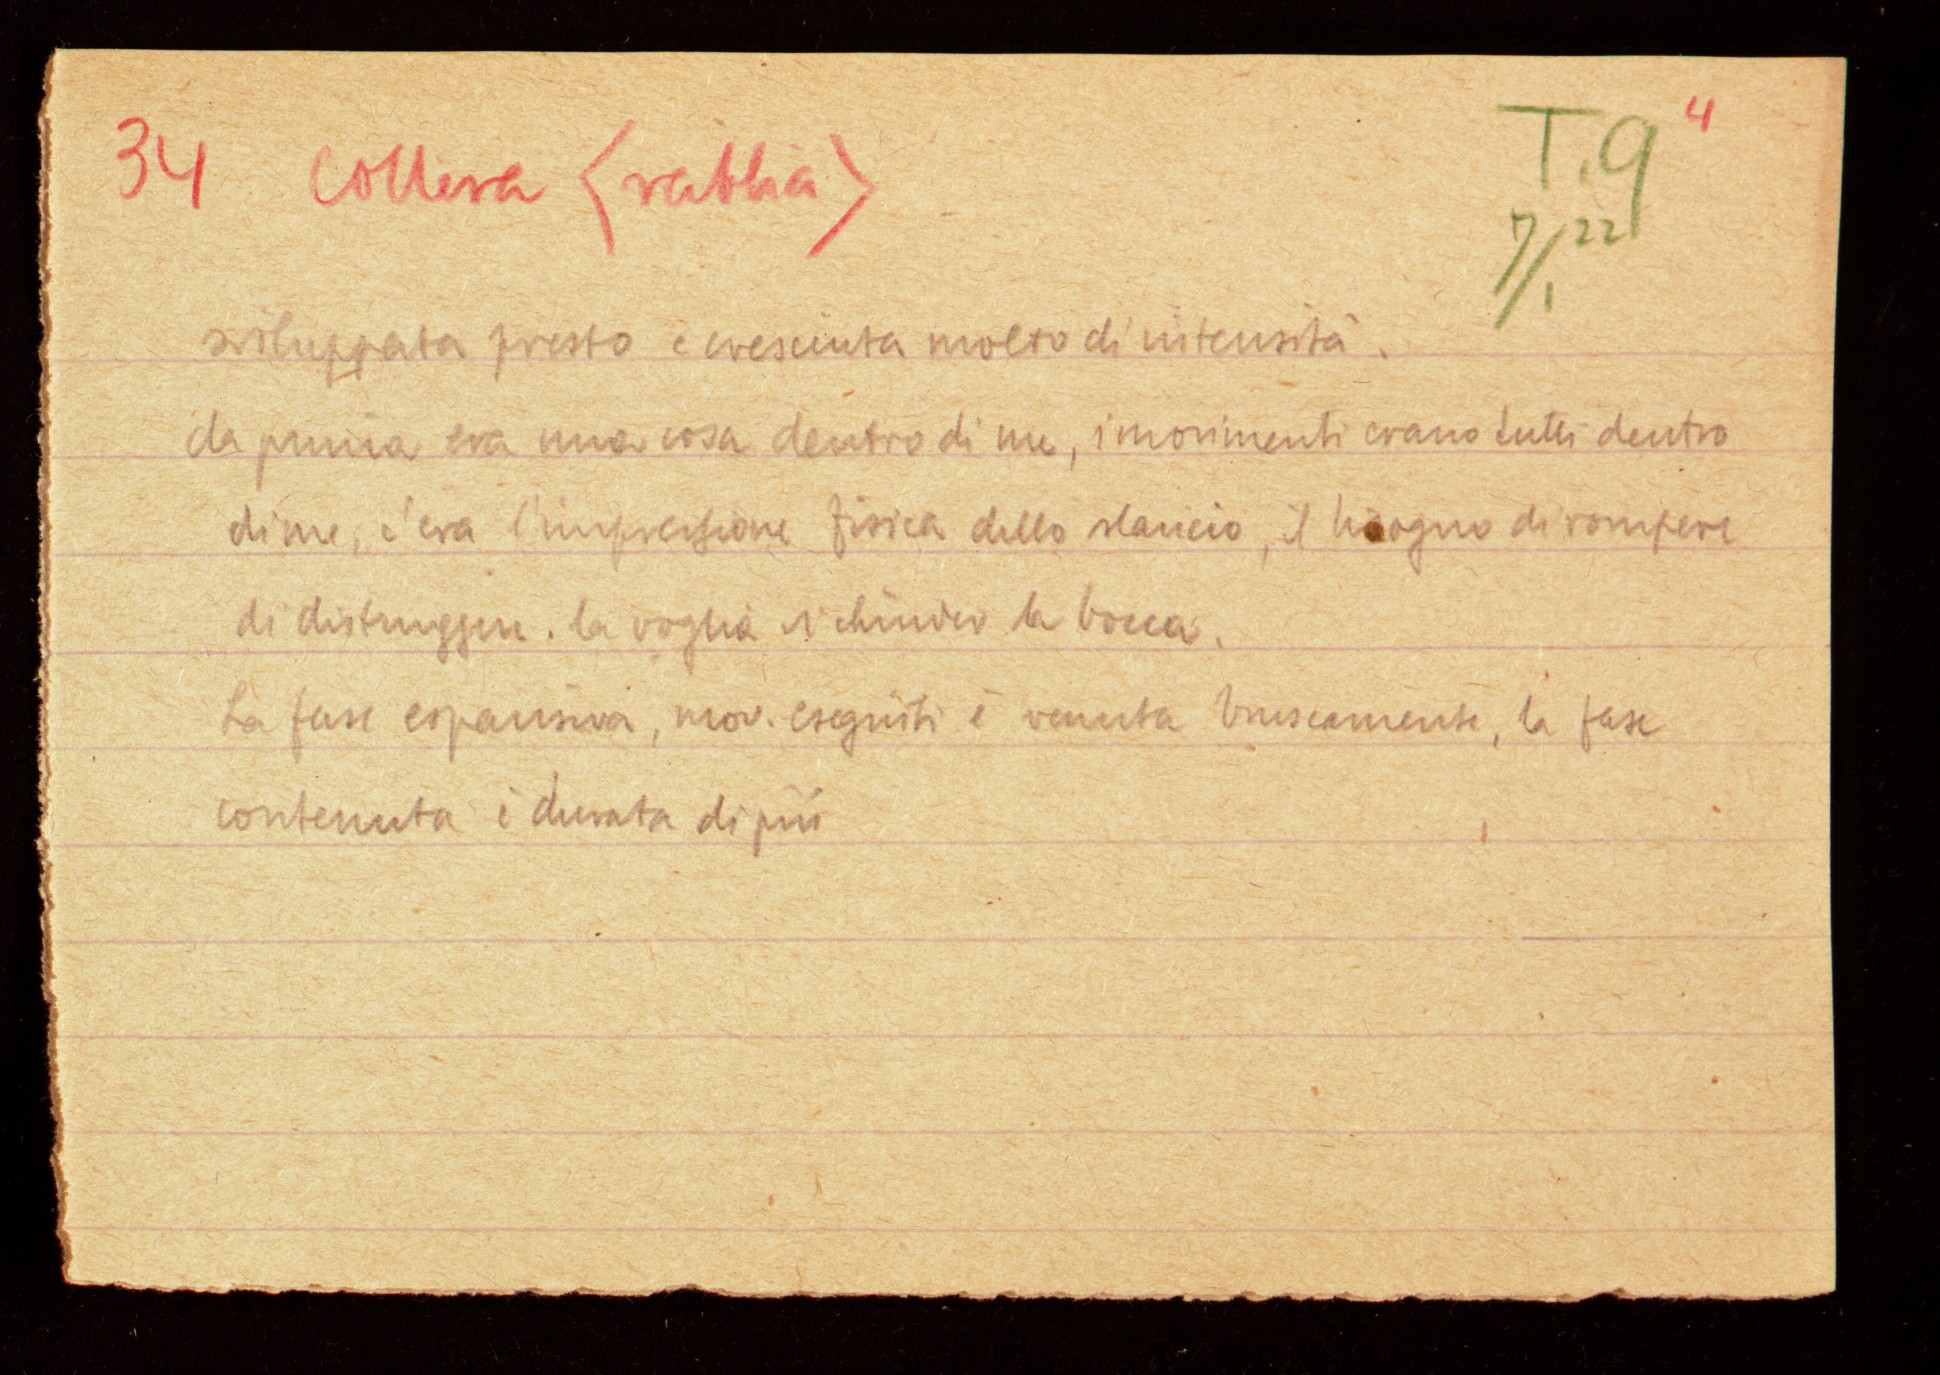 34 Collera <rabbia> T.9 4
7/1 22
sviluppata presto e cresciuta molto di intensità.
da prima era una cosa dentro di me, i movimenti erano tutti dentro
di me, c'era l'impressione fisica dello slancio, il bisogno di rompere
di distruggere. la voglia di chiuder la bocca.
La fase espansiva, mov. eseguiti è venuta bruscamente, la fase
contenuta è durata di più